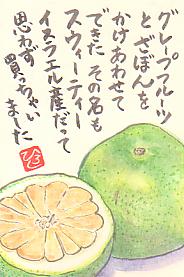 グレープフルーツ
とざぼんを
かけあわせて
できた その名も
スウィーティー
イスラエル産だって
思わず買っちゃい
ました